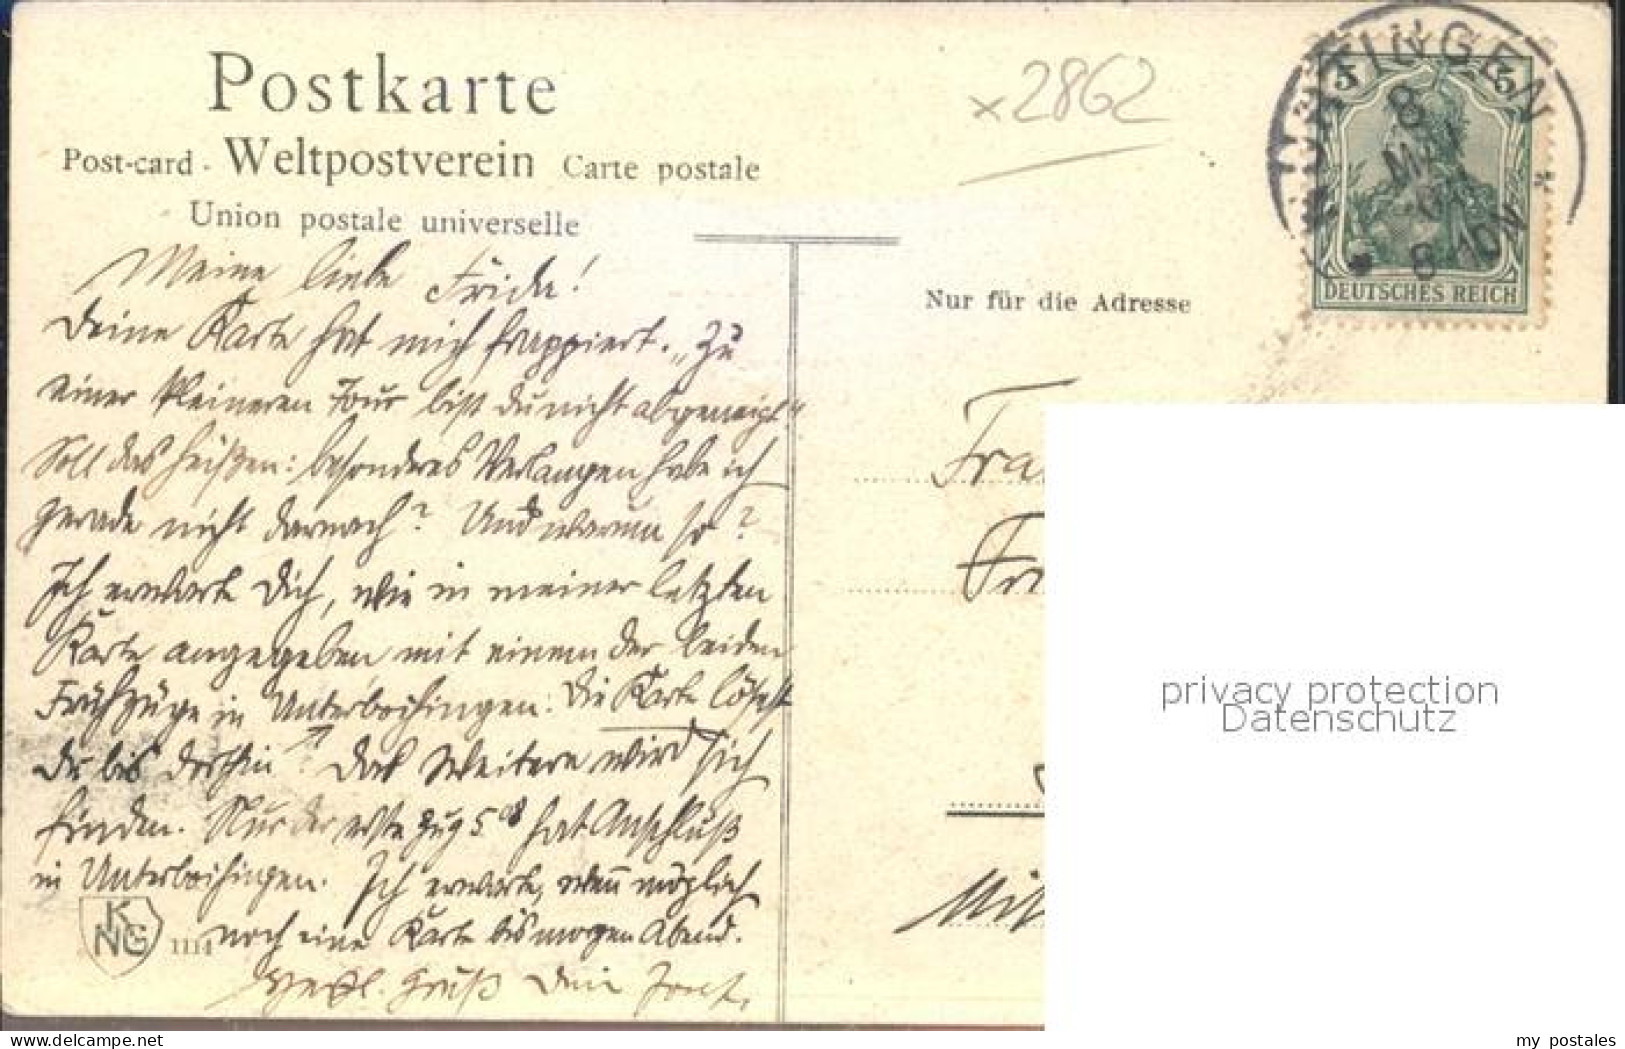 Postkarte
Post-card - Weltpostverein Carte postale
Union postale universelle
x 2862
5 5
NÜRTINGEN
8
MAI
8-10N
DEUTSCHES REICH
Nur für die Adresse
Meine liebe Frida!
Deine Karte hat mich frappiert. „Zu
einer kleineren Tour bist du nicht abgeneigt"
Soll das heißen: besonderes Verlangen habe ich
gerade nicht darnach? Und warum so?
Ich erwarte Dich, wie in meiner letzten
Karte angegeben mit einem der beiden
Frühzüge in Unterboihingen: Die Karte lösest
du bis dorthin! Das Weitere wird sich
finden. Nur der erste Zug 5 hat Anschluß
in Unterboihingen. Ich erwarte, wenn möglich
noch eine Karte bis morgen Abend.
Herzl. Gruß Dein Josef.
KNG 1114
Fra
Fr
privacy protection
Datenschutz
www.delcampe.net
my postales